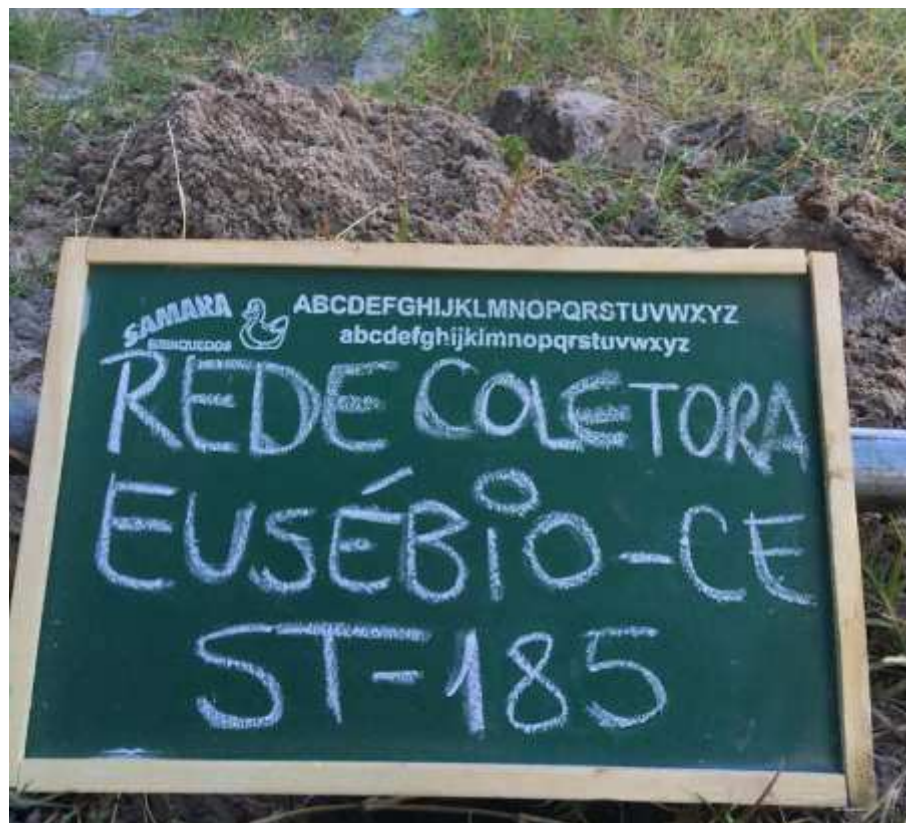 SAMARA
BRINQUEDOS
ABCDEFGHIJKLMNOPQRSTUVWXYZ
abcdefghijklmnopqrstuvwxyz
REDE COLETORA
EUSÉBIO-CE
ST-185